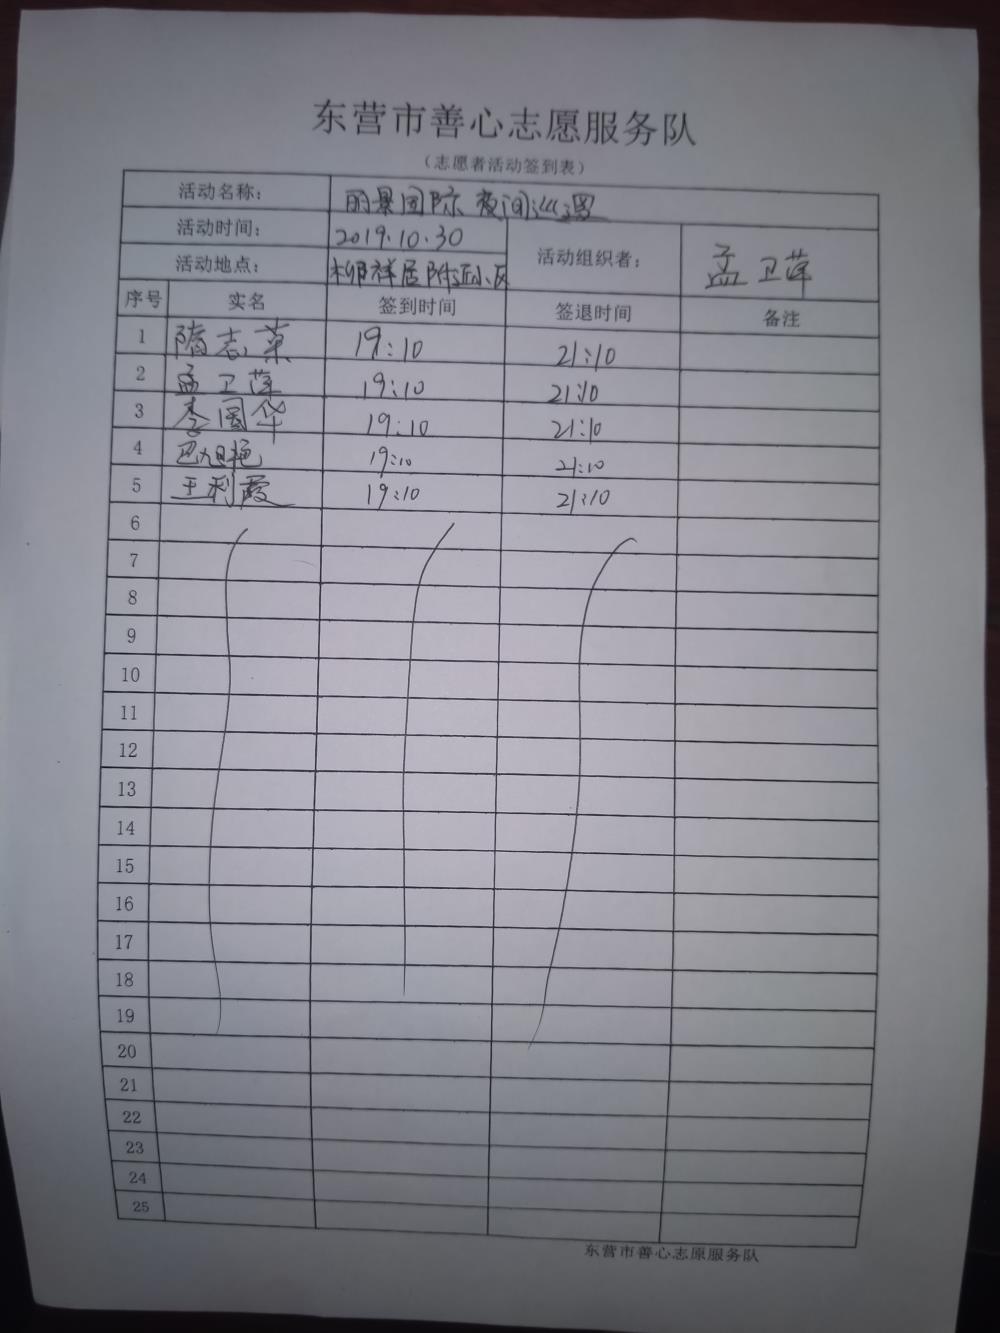 东营市善心志愿服务队
（志愿者活动签到表）
活动名称： 丽景国际夜间巡逻
活动时间： 2019.10.30 活动组织者： 孟卫萍
活动地点： 柳祥居附近小区
序号 实名 签到时间 签退时间 备注
1 隋志菜 19:10 21:10
2 孟卫萍 19:10 21:10
3 李国华 19:10 21:10
4 巴旭艳 19:10 21:10
5 王利霞 19:10 21:10
6
7
8
9
10
11
12
13
14
15
16
17
18
19
20
21
22
23
24
25
东营市善心志原服务队